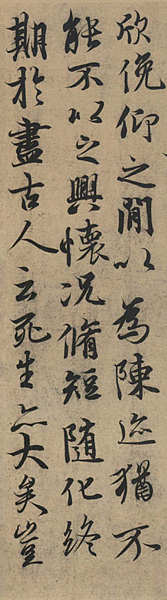 欣俛仰之閒以為陳迹猶不
能不以之興懷况脩短随化終
期於盡古人云死生亦大矣豈